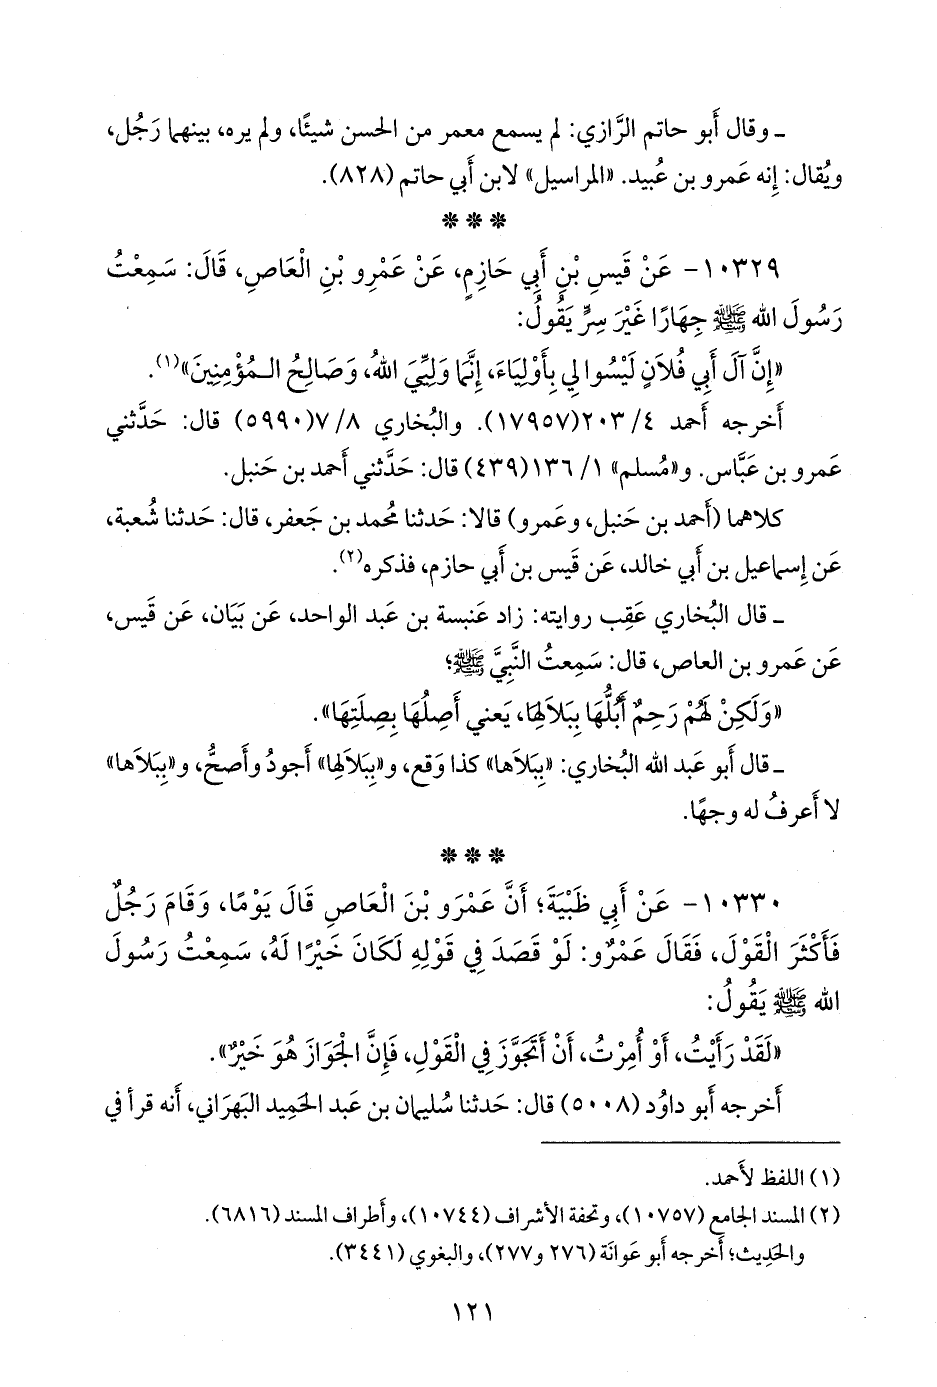 ـ وقال أَبو حاتم الرَّازي: لم يسمع معمر من الحسن شيئًا، ولم يره، بينهما رَجُل،
ويُقال: إِنه عَمرو بن عُبيد. «المراسيل» لابن أَبي حاتم (٨٢٨).
* * *
١٠٣٢٩- عَنْ قَيْسِ بْنِ أَبِي حَازِمٍ، عَنْ عَمْرِو بْنِ الْعَاصِ، قَالَ: سَمِعْتُ
رَسُولَ الله ﷺ جِهَارًا غَيْرَ سِرٍّ يَقُولُ:
«إِنَّ آلَ أَبِي فُلَانٍ لَيْسُوا لِي بِأَوْلِيَاءَ، إِنَّمَا وَلِيِّيَ اللهُ، وَصَالِحُ الْـمُؤْمِنِينَ»(١).
أَخرجه أَحمد ٤/ ٢٠٣(١٧٩٥٧). والبُخاري ٨/ ٧(٥٩٩٠) قال: حَدَّثني
عَمرو بن عَبَّاس. و«مُسلم» ١/ ١٣٦(٤٣٩) قال: حَدَّثني أَحمد بن حَنبل.
كلاهما (أَحمد بن حَنبل، وعَمرو) قالا: حَدثنا مُحمد بن جَعفر، قال: حَدثنا شُعبة،
عَن إِسماعيل بن أَبي خالد، عَن قَيس بن أَبي حازم، فذكره(٢).
ـ قال البُخاري عَقِب روايته: زاد عَنبسة بن عَبد الواحد، عَن بَيَان، عَن قَيس،
عَن عَمرو بن العاص، قال: سَمِعتُ النَّبِيَّ ﷺ؛
«وَلَكِنْ لَهُمْ رَحِمٌ أَبُلُّهَا بِبَلاَلِهَا، يَعني أَصِلُهَا بِصِلَتِهَا».
ـ قال أَبو عَبد الله البُخاري: «بِبَلاَها» كذا وَقع، و«بِبَلاَلِها» أَجودُ وأَصحُّ، و«بِبَلاَها»
لا أَعرفُ له وجهًا.
* * *
١٠٣٣٠- عَنْ أَبِي ظَبْيَةَ؛ أَنَّ عَمْرَو بْنَ الْعَاصِ قَالَ يَوْمًا، وَقَامَ رَجُلٌ
فَأَكْثَرَ الْقَوْلَ، فَقَالَ عَمْرٌو: لَوْ قَصَدَ فِي قَوْلِهِ لَكَانَ خَيْرًا لَهُ، سَمِعْتُ رَسُولَ
الله ﷺ يَقُولُ:
«لَقَدْ رَأَيْتُ، أَوْ أُمِرْتُ، أَنْ أَتَجَوَّزَ فِي الْقَوْلِ، فَإِنَّ الْجَوَازَ هُوَ خَيْرٌ».
أَخرجه أَبو داوُد (٥٠٠٨) قال: حَدثنا سُليمان بن عَبد الحَمِيد البَهرَاني، أَنه قرأ في
(١) اللفظ لأَحمد.
(٢) المسند الجامع (١٠٧٥٧)، وتحفة الأشراف (١٠٧٤٤)، وأَطراف المسند (٦٨١٦).
والحَدِيث؛ أَخرجه أَبو عَوانَة (٢٧٦ و٢٧٧)، والبغوي (٣٤٤١).
١٢١